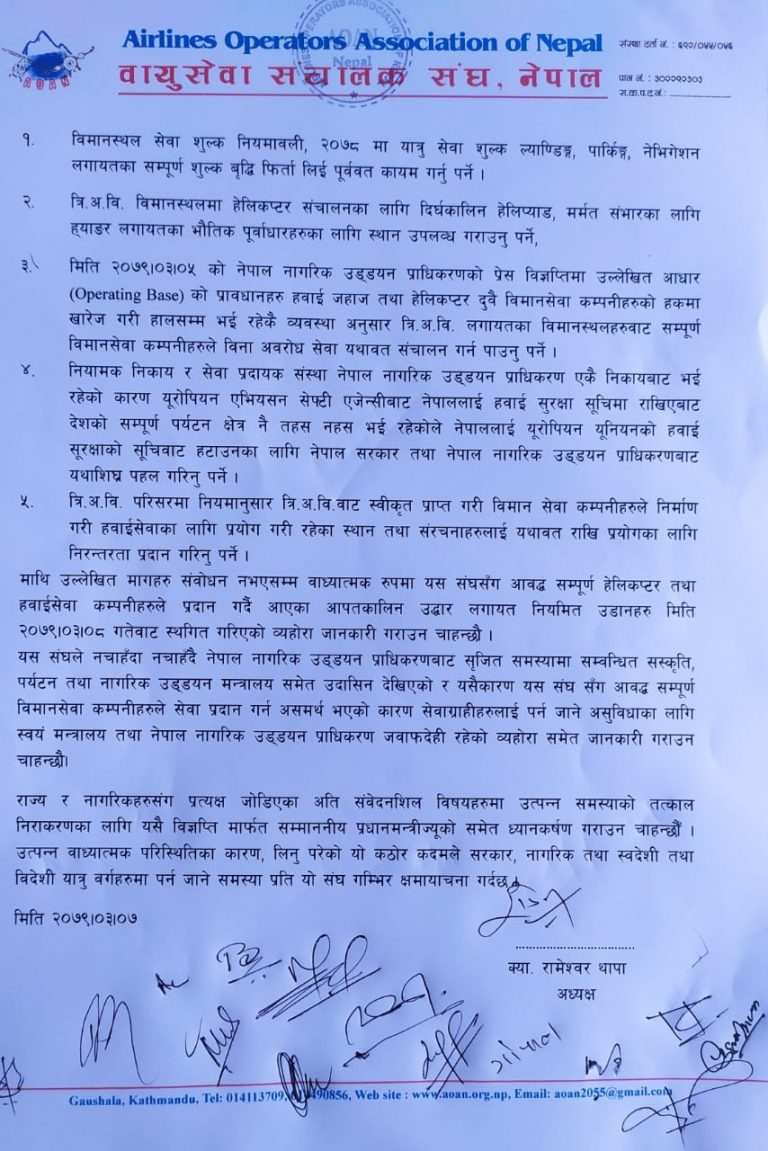 Airlines Operators Association of Nepal
वायुसेवा संचालक संघ, नेपाल
संस्था दर्ता नं. : ६२२/०५५/०५६
पान नं. : ३०२२१२३०३
म.क.प.द.नं.: ........................
AOAN
AOAN
Nepal
१. विमानस्थल सेवा शुल्क नियमावली, २०७८ मा यात्रु सेवा शुल्क ल्याण्डिङ्ग, पार्किङ्ग, नेभिगेशन
लगायतका सम्पूर्ण शुल्क बृद्धि फिर्ता लिई पूर्ववत कायम गर्नु पर्ने ।
२. त्रि.अ.वि. विमानस्थलमा हेलिकप्टर संचालनका लागि दिर्घकालिन हेलिप्याड, मर्मत संभारका लागि
ह्याङर लगायतका भौतिक पूर्वाधारहरुका लागि स्थान उपलव्ध गराउनु पर्ने,
३. मिति २०७९।०३।०५ को नेपाल नागरिक उड्डयन प्राधिकरणको प्रेस विज्ञप्तिमा उल्लेखित आधार
(Operating Base) को प्रावधानहरु हवाई जहाज तथा हेलिकप्टर दुवै विमानसेवा कम्पनीहरुको हकमा
खारेज गरी हालसम्म भई रहेकै व्यवस्था अनुसार त्रि.अ.वि. लगायतका विमानस्थलहरुवाट सम्पूर्ण
विमानसेवा कम्पनीहरुले विना अवरोध सेवा यथावत संचालन गर्न पाउनु पर्ने ।
४. नियामक निकाय र सेवा प्रदायक संस्था नेपाल नागरिक उड्डयन प्राधिकरण एकै निकायबाट भई
रहेको कारण यूरोपियन एभियसन सेफ्टी एजेन्सीबाट नेपाललाई हवाई सुरक्षा सूचिमा राखिएबाट
देशको सम्पूर्ण पर्यटन क्षेत्र नै तहस नहस भई रहेकोले नेपाललाई यूरोपियन यूनियनको हवाई
सूरक्षाको सूचिवाट हटाउनका लागि नेपाल सरकार तथा नेपाल नागरिक उड्डयन प्राधिकरणबाट
यथाशिघ्र पहल गरिनु पर्ने ।
५. त्रि.अ.वि. परिसरमा नियमानुसार त्रि.अ.वि.वाट स्वीकृत प्राप्त गरी विमान सेवा कम्पनीहरुले निर्माण
गरी हवाईसेवाका लागि प्रयोग गरी रहेका स्थान तथा संरचनाहरुलाई यथावत राखि प्रयोगका लागि
निरन्तरता प्रदान गरिनु पर्ने ।
माथि उल्लेखित मागहरु संवोधन नभएसम्म वाध्यात्मक रुपमा यस संघसँग आवद्ध सम्पूर्ण हेलिकप्टर तथा
हवाईसेवा कम्पनीहरुले प्रदान गर्दै आएका आपतकालिन उद्धार लगायत नियमित उडानहरु मिति
२०७९।०३।०८ गतेवाट स्थगित गरिएको व्यहोरा जानकारी गराउन चाहन्छौ ।
यस संघले नचाहँदा नचाहँदै नेपाल नागरिक उड्डयन प्राधिकरणबाट सृजित समस्यामा सम्वन्धित सस्कृति,
पर्यटन तथा नागरिक उड्डयन मन्त्रालय समेत उदासिन देखिएको र यसैकारण यस संघ सँग आवद्ध सम्पूर्ण
विमानसेवा कम्पनीहरुले सेवा प्रदान गर्न असमर्थ भएको कारण सेवाग्राहीहरुलाई पर्न जाने असुविधाका लागि
स्वयं मन्त्रालय तथा नेपाल नागरिक उड्डयन प्राधिकरण जवाफदेही रहेको व्यहोरा समेत जानकारी गराउन
चाहन्छौ।
राज्य र नागरिकहरुसंग प्रत्यक्ष जोडिएका अति संवेदनशिल विषयहरुमा उत्पन्न समस्याको तत्काल
निराकरणका लागि यसै विज्ञप्ति मार्फत सम्माननीय प्रधानमन्त्रीज्यूको समेत ध्यानकर्षण गराउन चाहन्छौँ ।
उत्पन्न वाध्यात्मक परिस्थितिका कारण, लिनु परेको यो कठोर कदमले सरकार, नागरिक तथा स्वदेशी तथा
विदेशी यात्रु वर्गहरुमा पर्न जाने समस्या प्रति यो संघ गम्भिर क्षमायाचना गर्दछ।
मिति २०७९।०३।०७
..................................
क्या. रामेश्वर थापा
अध्यक्ष
Gaushala, Kathmandu, Tel: 014113709, 90856, Web site : www.aoan.org.np, Email: aoan2055@gmail.com